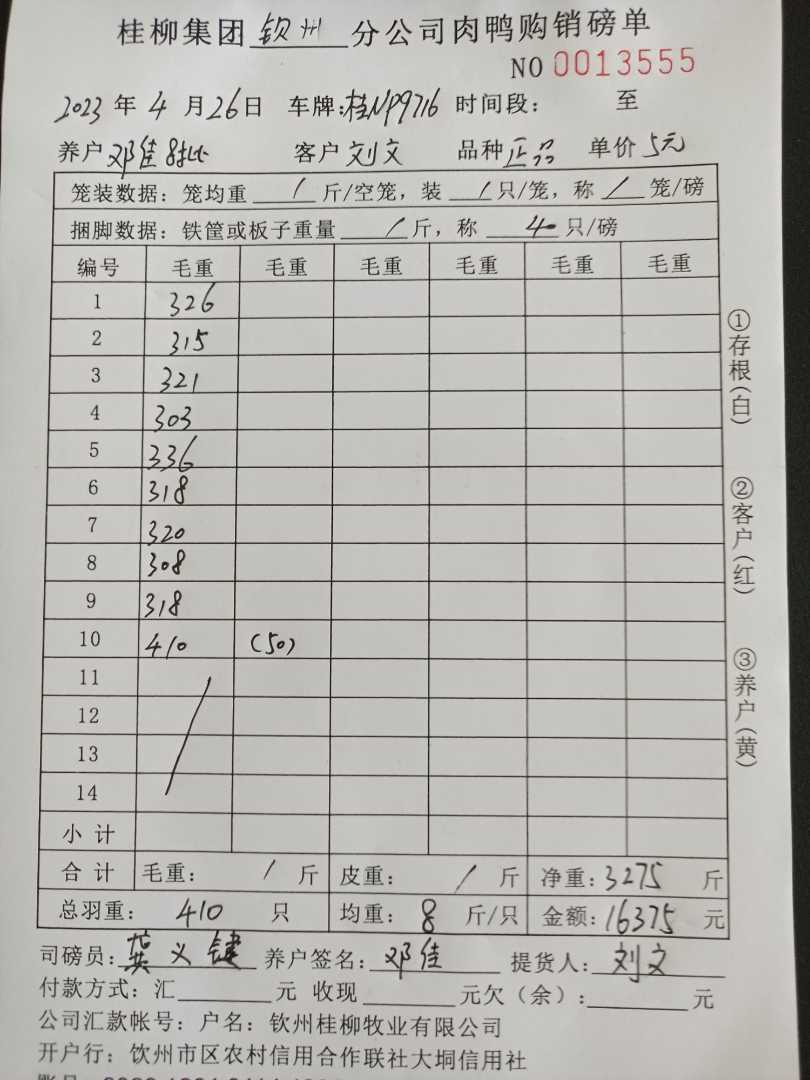 桂柳集团 钦州 分公司肉鸭购销磅单
NO 0013555
2023 年 4 月 26 日 车牌:桂NP9716 时间段: 至
养户 邓佳 8批 客户 刘文 品种 正品 单价 5元
笼装数据:笼均重 / 斤/空笼,装 / 只/笼,称 / 笼/磅
捆脚数据:铁筐或板子重量 / 斤,称 40 只/磅
编号 毛重 毛重 毛重 毛重 毛重 毛重
1 326
2 315
3 321
4 303
5 336
6 318
7 320
8 308
9 318
10 410 (50)
11
12
13
14
小 计
合 计 毛重: / 斤 皮重: / 斤 净重:3275 斤
总羽重: 410 只 均重: 8 斤/只 金额:16375 元
司磅员:龚义键 养户签名:邓佳 提货人:刘文
付款方式:汇 元 收现 元欠(余): 元
公司汇款帐号:户名:钦州桂柳牧业有限公司
开户行:饮州市区农村信用合作联社大垌信用社
①存根(白)
②客户(红)
③养户(黄)